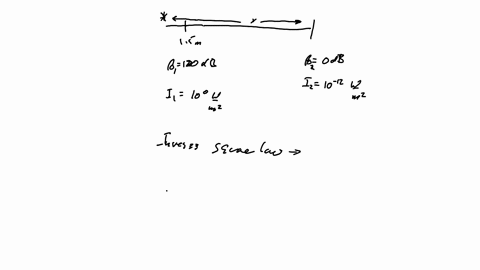 x
1.5m
β₁=120 dB
β₂= 0 dB
I₁ = 10⁰ W/m²
I₂= 10⁻¹² W/m²
Inverse square law →